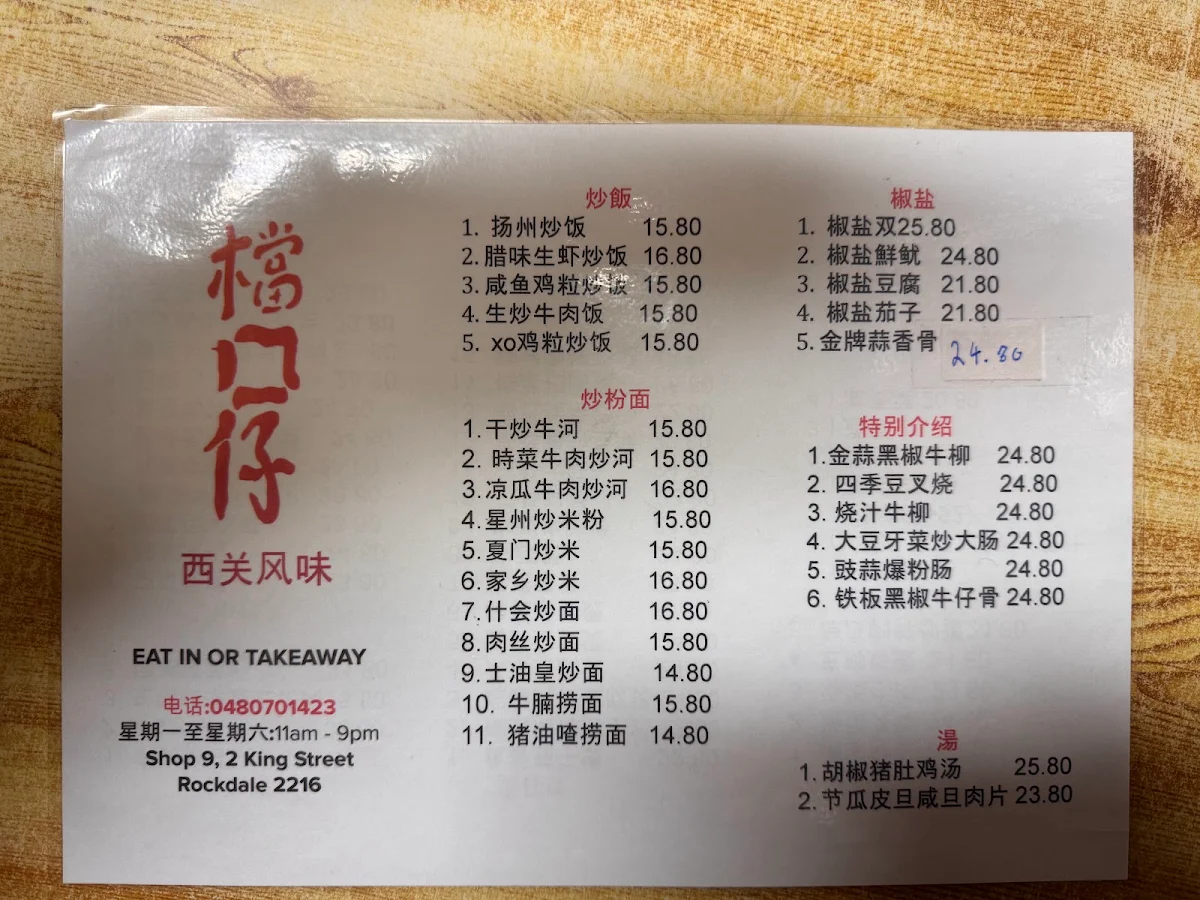 檔口仔
西关风味
EAT IN OR TAKEAWAY
电话:0480701423
星期一至星期六:11am - 9pm
Shop 9, 2 King Street
Rockdale 2216
炒飯
1. 扬州炒饭 15.80
2. 腊味生虾炒饭 16.80
3. 咸鱼鸡粒炒饭 15.80
4. 生炒牛肉饭 15.80
5. xo鸡粒炒饭 15.80
炒粉面
1. 干炒牛河 15.80
2. 時菜牛肉炒河 15.80
3. 凉瓜牛肉炒河 16.80
4. 星州炒米粉 15.80
5. 夏门炒米 15.80
6. 家乡炒米 16.80
7. 什会炒面 16.80
8. 肉丝炒面 15.80
9. 士油皇炒面 14.80
10. 牛腩捞面 15.80
11. 猪油喳捞面 14.80
椒盐
1. 椒盐双25.80
2. 椒盐鮮鱿 24.80
3. 椒盐豆腐 21.80
4. 椒盐茄子 21.80
5. 金牌蒜香骨 24.80
特别介绍
1.金蒜黑椒牛柳 24.80
2. 四季豆叉烧 24.80
3. 烧汁牛柳 24.80
4. 大豆牙菜炒大肠 24.80
5. 豉蒜爆粉肠 24.80
6. 铁板黑椒牛仔骨 24.80
湯
1. 胡椒猪肚鸡汤 25.80
2. 节瓜皮旦咸旦肉片 23.80